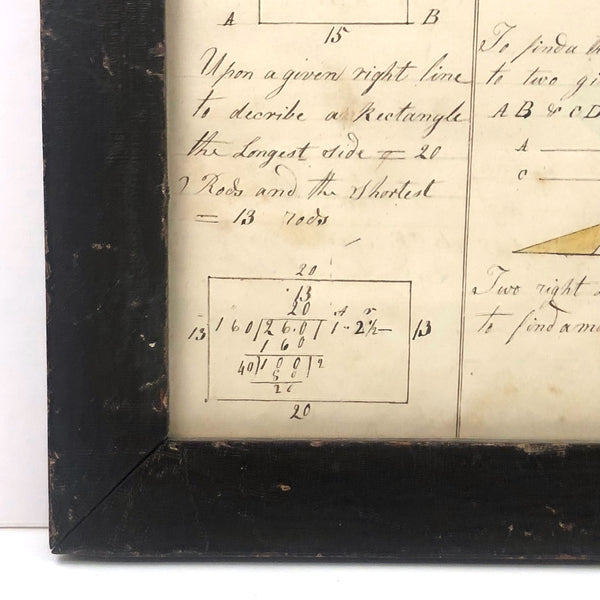 A B
15
Upon a given right line
to decribe a Rectangle
the Longest side = 20
Rods and the Shortest
= 13 rods
20
13
20
13 160)260(1-2½- 13
160
40)100(2
80
20
20
To find a
to two gi
AB & CD
A
C
Two right
to find a m